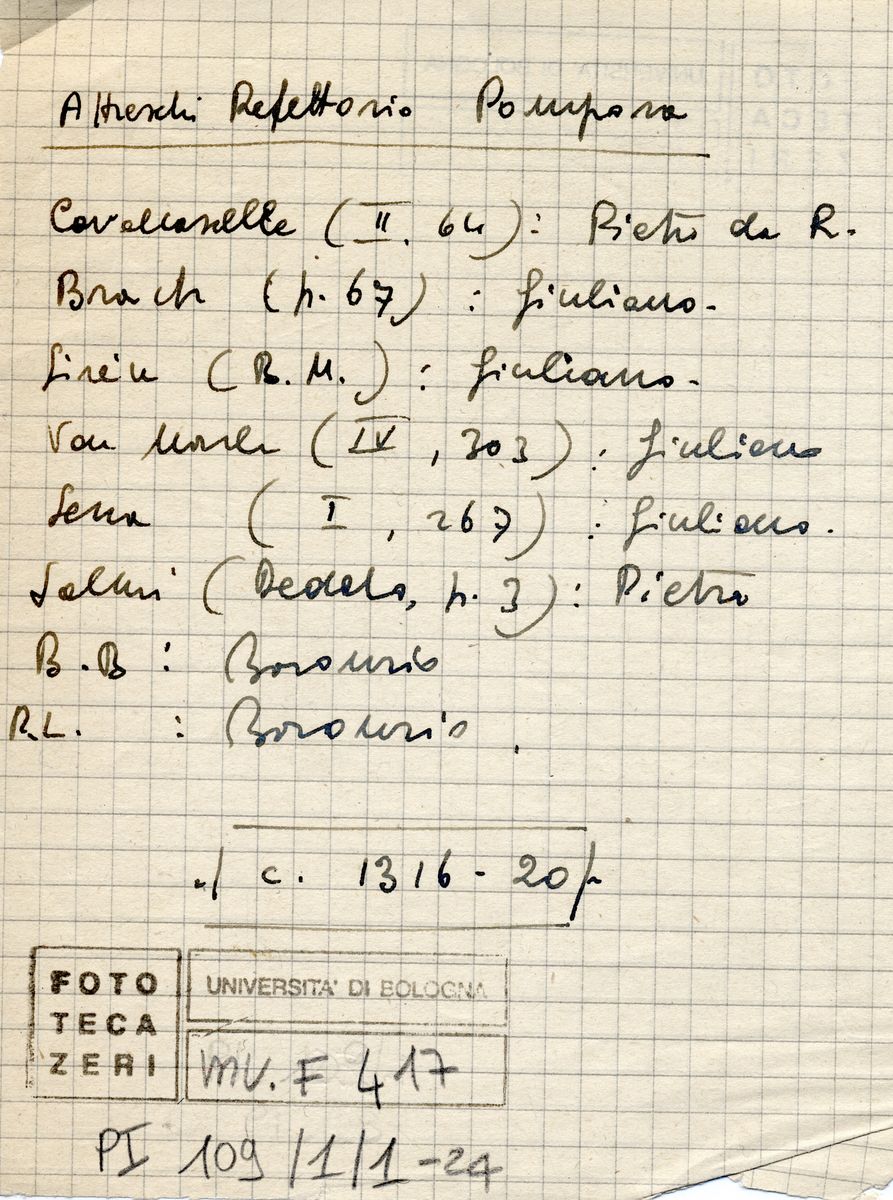 Affreschi Refettorio Pomposa
Cavalcaselle (II. 64): Pietro da R.
Brach (p. 67) : Giuliano.
Sirèn (B.M.) : Giuliano.
Van Marle (IV, 303) : Giuliano
Serra (I, 267) : Giuliano.
Salmi (Dedalo, p. 3): Pietro
B.B : Baronzio
R.L. : Baronzio.
c. 1316-20
FOTO
TECA
ZERI
UNIVERSITA' DI BOLOGNA
INV. F 417
PI 109/1/1-24